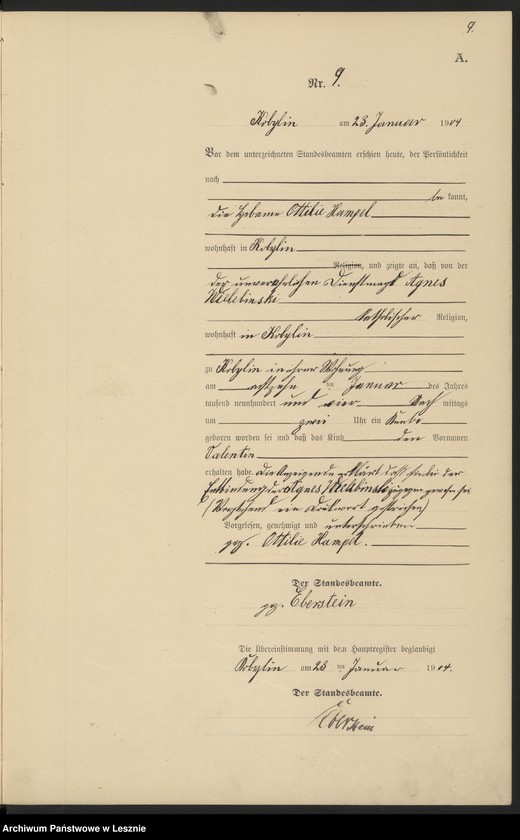 9.
A.
Nr. 9.
Kobylin am 23. Januar 1904
Vor dem unterzeichneten Standesbeamten erschien heute, der Persönlichkeit
nach
be kannt,
die Hebamme Ottilie Hampel
wohnhaft in Kobylin
Religion, und zeigte an, daß von der
der unverehelichten Dienstmagd Agnes
Wielebinski
katholischer Religion,
wohnhaft in Kobylin
zu Kobylin in ihrer Wohnung
am achtzehn ten Januar des Jahres
tausend neunhundert und vier Nach mittags
um zwei Uhr ein Knabe
geboren worden sei und daß das Kind den Vornamen
Valentin
erhalten habe. Die Anzeigende erklärt, daß sie bei der
Entbindung der Agnes Wielebinski zugegen gewesen sei
(Vorstehend ein Druckwort gestrichen)
Vorgelesen, genehmigt und unterschrieben
gez. Ottilie Hampel.
Der Standesbeamte.
gez. Eberstein
Die Übereinstimmung mit dem Hauptregister beglaubigt
Kobylin am 23 ten Januar 1904.
Der Standesbeamte.
Eberstein
Archiwum Państwowe w Lesznie